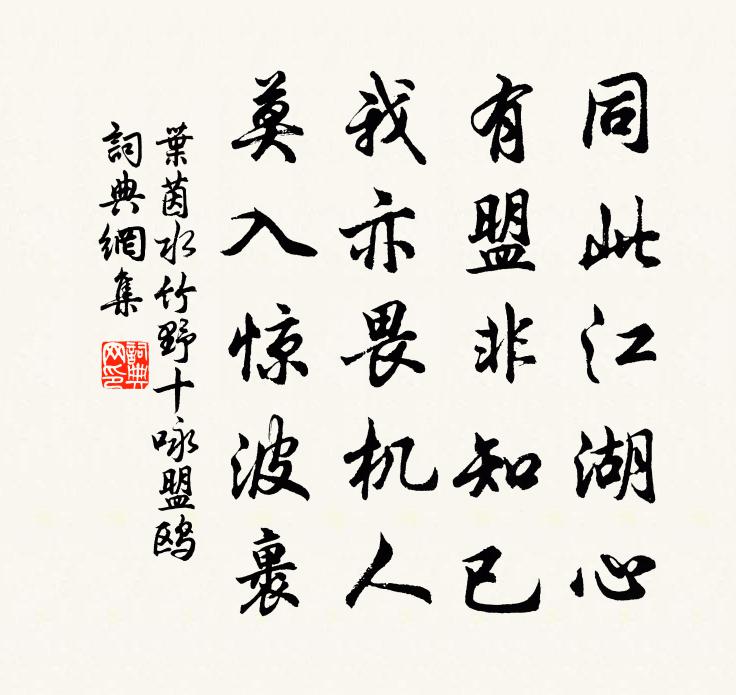 同此江湖心
有盟非知已
我亦畏机人
莫入惊波裹
葉茵水竹野十咏盟鸥
詞典網集
詞典网印